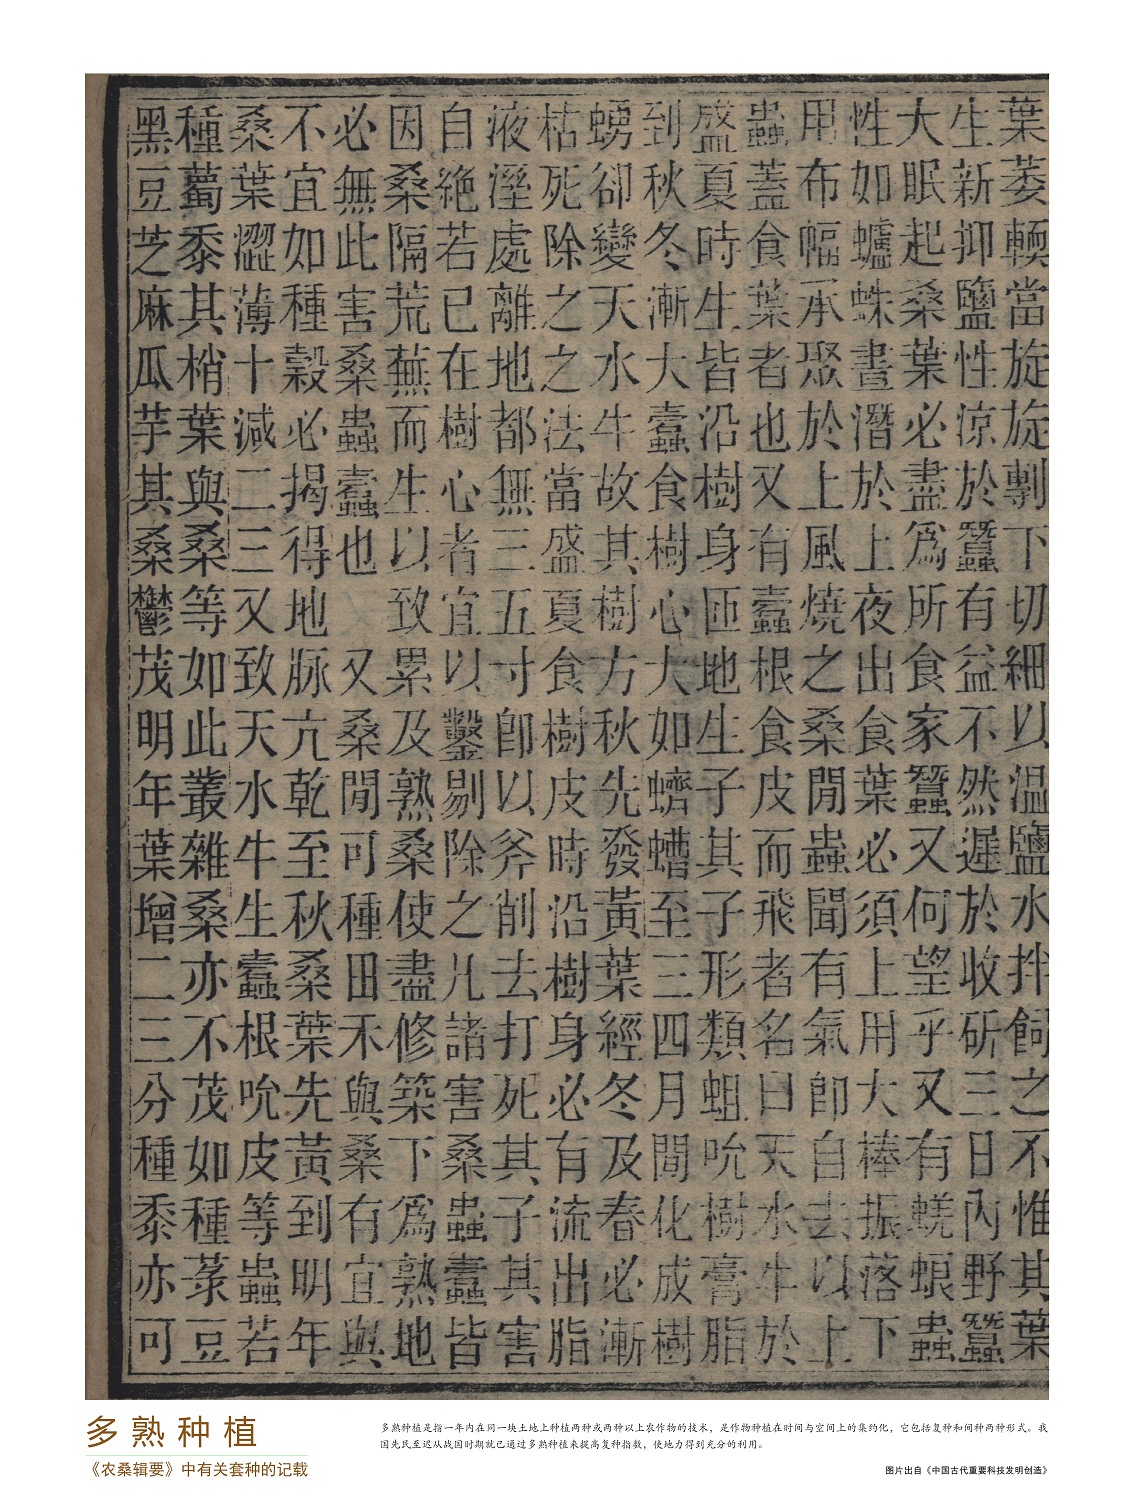 葉萎輭當旋旋剸下切細以温鹽水拌飼之不惟其葉
生新抑鹽性涼於蠶有益不然遲於收斫三日內野蠶
大眠起桑葉必盡爲所食家蠶又何望乎又有蜣蜋蟲
性如蠦蛛晝潛於上夜出食葉必須上用大棒振落下
用布幅承聚於上風燒之桑閒蟲聞有氣即自去以上
蟲蓋食葉者也又有蠹根食皮而飛者名曰天水牛於
盛夏時生皆沿樹身匝地生子其子形類蛆吮樹膏脂
到秋冬漸大蠹食樹心大如蠐螬至三四月間化成樹
蛹卻變天水牛故其樹方秋先發黃葉經冬及春必漸
枯死除之之法當盛夏食樹皮時沿樹身必有流出脂
液溼處離地都無三五寸即以斧削去打死其子其害
自絶若已在樹心者宜以鑿剔除之凡諸害桑蟲蠹皆
因桑隔荒蕪而生以致累及熟桑使盡修築下爲熟地
必無此害桑蟲蠹也 又桑閒可種田禾與桑有宜與
不宜如種穀必揭得地脉亢乾至秋桑葉先黃到明年
桑葉澀薄十減二三又致天水牛生蠹根吮皮等蟲若
種蜀黍其梢葉與桑等如此叢雜桑亦不茂如種菉豆
黑豆芝麻瓜芋其桑鬱茂明年葉增二三分種黍亦可
多熟种植
《农桑辑要》中有关套种的记载
多熟种植是指一年内在同一块土地上种植两种或两种以上农作物的技术，是作物种植在时间与空间上的集约化，它包括复种和间种两种形式。我
国先民至迟从战国时期就已通过多熟种植来提高复种指数，使地力得到充分的利用。
图片出自《中国古代重要科技发明创造》